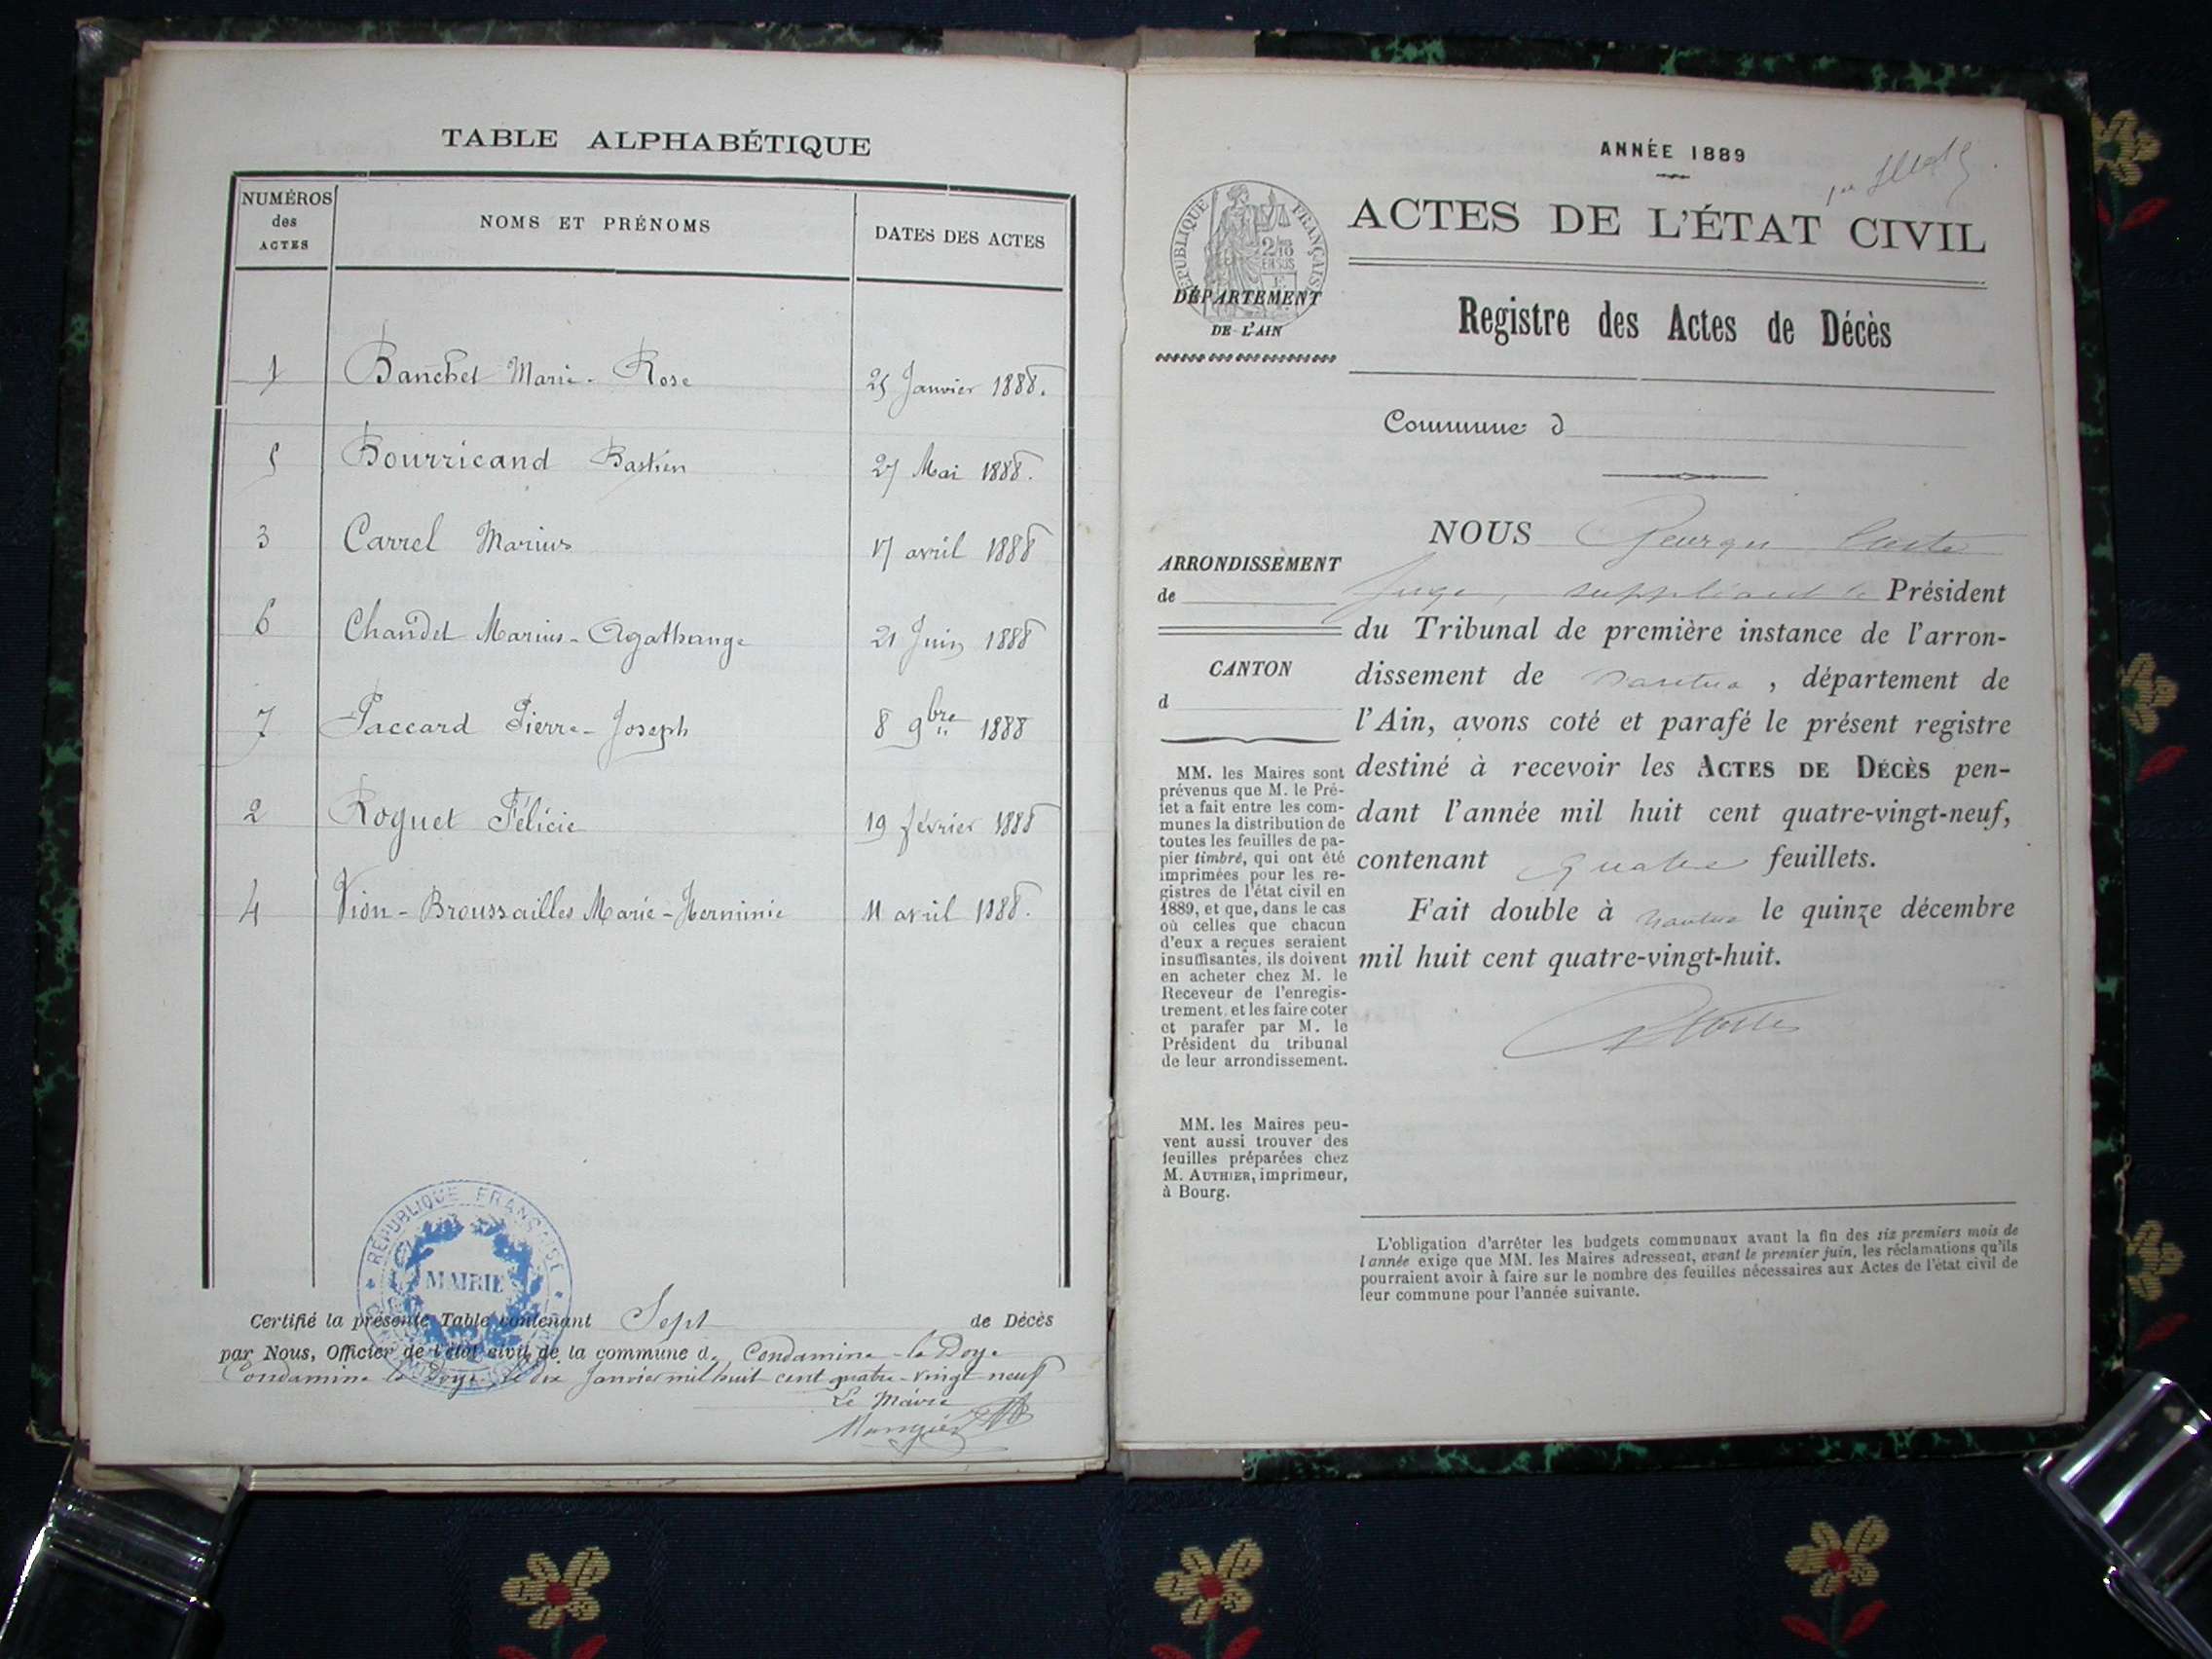 TABLE ALPHABÉTIQUE
NUMÉROS
des
ACTES
NOMS ET PRÉNOMS
DATES DES ACTES
1 Banchet Marie-Rose 25 Janvier 1888.
5 Bourricand Bastien 27 Mai 1888.
3 Carrel Marius 17 avril 1888
6 Chandet Marius-Agathange 21 Juin 1888
7 Paccard Pierre-Joseph 8 9bre 1888
2 Roguet Félicie 19 février 1888
4 Vion-Broussailles Marie-Herminie 11 avril 1888.
RÉPUBLIQUE FRANÇAISE
MAIRIE
Certifié la présente Table contenant Sept de Décès
par Nous, Officier de l'état civil de la commune d. Condamine-la Doye
Condamine la Doye, le dix Janvier mil huit cent quatre-vingt neuf
Le Maire
ANNÉE 1889
RÉPUBLIQUE FRANÇAISE
2/10
EN SUS
DÉPARTEMENT
DE L'AIN
ACTES DE L'ÉTAT CIVIL
Registre des Actes de Décès
Commune d
ARRONDISSEMENT
de
CANTON
d
MM. les Maires sont
prévenus que M. le Pré-
fet a fait entre les com-
munes la distribution de
toutes les feuilles de pa-
pier timbré, qui ont été
imprimées pour les re-
gistres de l'état civil en
1889, et que, dans le cas
où celles que chacun
d'eux a reçues seraient
insuffisantes, ils doivent
en acheter chez M. le
Receveur de l'enregis-
trement, et les faire coter
et parafer par M. le
Président du tribunal
de leur arrondissement.
MM. les Maires peu-
vent aussi trouver des
feuilles préparées chez
M. AUTHIER, imprimeur,
à Bourg.
NOUS Georges
Juge, suppléant le Président
du Tribunal de première instance de l'arron-
dissement de Nantua, département de
l'Ain, avons coté et parafé le présent registre
destiné à recevoir les ACTES DE DÉCÈS pen-
dant l'année mil huit cent quatre-vingt-neuf,
contenant quatre feuillets.
Fait double à Nantua le quinze décembre
mil huit cent quatre-vingt-huit.
L'obligation d'arrêter les budgets communaux avant la fin des six premiers mois de
l'année exige que MM. les Maires adressent, avant le premier juin, les réclamations qu'ils
pourraient avoir à faire sur le nombre des feuilles nécessaires aux Actes de l'état civil de
leur commune pour l'année suivante.